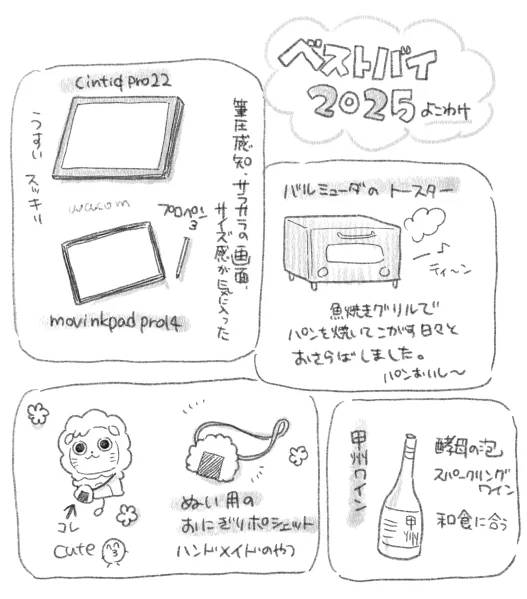 ベストバイ
2025 よこわけ
cintiq pro22
うすい スッキリ
wacom
プロペン3
筆圧感知、サラサラの画面、
サイズ感が気に入った
movinkpad pro14
バルミューダの トースター
ティ〜ン
魚焼きグリルで
パンを焼いてこがす日々と
おさらばしました。
パンおいし〜
コレ
cute
ぬい用の
おにぎりポシェット
ハンドメイドのやつ
甲州ワイン
甲州
酵母の泡
スパークリング
ワイン
和食に合う